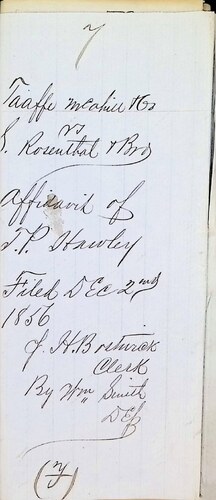 7
Taaffe McCahill & Co
vs
S. Rosenthal & Bro
Affidavit of
T.P. Hawley
Filed DEC 2nd
1856
J. H. Bostwick
Clerk
By Wm Smith